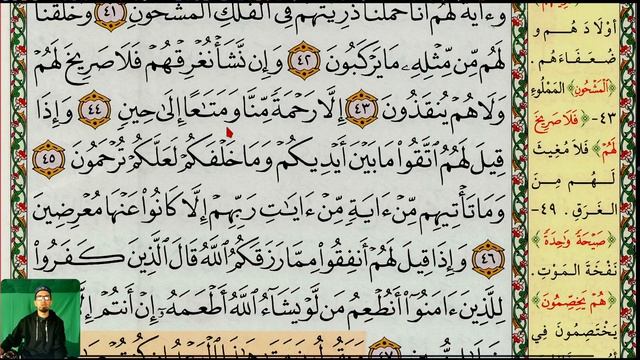 وَءَايَةٌ لَّهُمْ أَنَّا حَمَلْنَا ذُرِّيَّتَهُمْ فِى ٱلْفُلْكِ ٱلْمَشْحُونِ ٤١ وَخَلَقْنَا
لَهُم مِّن مِّثْلِهِۦ مَا يَرْكَبُونَ ٤٢ وَإِن نَّشَأْ نُغْرِقْهُمْ فَلَا صَرِيخَ لَهُمْ
وَلَا هُمْ يُنقَذُونَ ٤٣ إِلَّا رَحْمَةً مِّنَّا وَمَتَٰعًا إِلَىٰ حِينٍ ٤٤ وَإِذَا
قِيلَ لَهُمُ ٱتَّقُوا۟ مَا بَيْنَ أَيْدِيكُمْ وَمَا خَلْفَكُمْ لَعَلَّكُمْ تُرْحَمُونَ ٤٥
وَمَا تَأْتِيهِم مِّنْ ءَايَةٍ مِّنْ ءَايَٰتِ رَبِّهِمْ إِلَّا كَانُوا۟ عَنْهَا مُعْرِضِينَ
٤٦ وَإِذَا قِيلَ لَهُمْ أَنفِقُوا۟ مِمَّا رَزَقَكُمُ ٱللَّهُ قَالَ ٱلَّذِينَ كَفَرُوا۟
لِلَّذِينَ ءَامَنُوٓا۟ أَنُطْعِمُ مَن لَّوْ يَشَآءُ ٱللَّهُ أَطْعَمَهُۥٓ إِنْ أَنتُمْ إِلَّا
أَوْلَادَهُمْ وَ
ضُعَفَاءَهُمْ.
﴿ٱلْمَشْحُونِ﴾ المَمْلُوءِ
٤٣- ﴿فَلَا صَرِيخَ
لَهُمْ﴾ فَلَا مُغِيثَ
لَهُم مِنَ
الغَرَقِ. ٤٩-
﴿صَيْحَةً وَٰحِدَةً﴾
نَفْخَةَ المَوْتِ.
﴿هُمْ يَخِصِّمُونَ﴾
يَخْتَصِمُونَ فِي